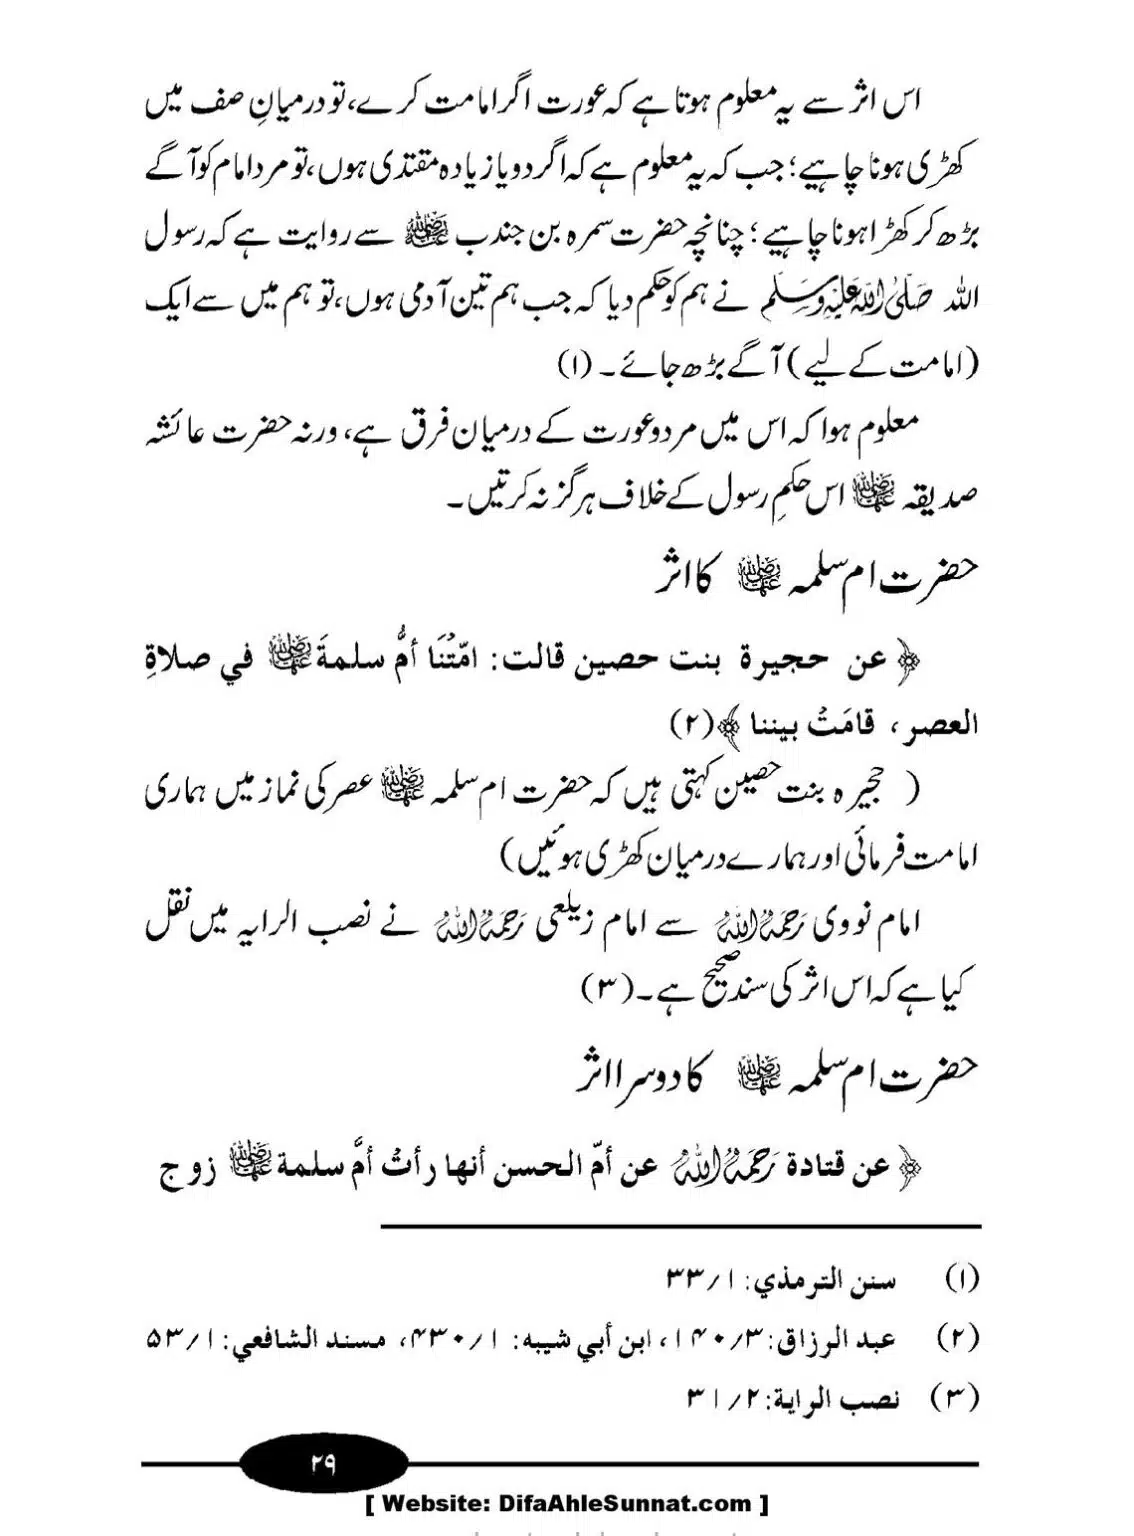 اس اثر سے یہ معلوم ہوتا ہے کہ عورت اگر امامت کرے، تو درمیانِ صف میں
کھڑی ہونا چاہیے؛ جب کہ یہ معلوم ہے کہ اگر دو یا زیادہ مقتدی ہوں، تو مرد امام کو آگے
بڑھ کر کھڑا ہونا چاہیے؛ چنانچہ حضرت سمرہ بن جندب رضی اللہ عنہ سے روایت ہے کہ رسول
اللہ صَلَّىٰ اللّٰهُ عَلَيْهِ وَسَلَّمَ نے ہم کو حکم دیا کہ جب ہم تین آدمی ہوں، تو ہم میں سے ایک
(امامت کے لیے) آگے بڑھ جائے۔ (۱)
معلوم ہوا کہ اس میں مرد و عورت کے درمیان فرق ہے، ورنہ حضرت عائشہ
صدیقہ رضی اللہ عنہا اس حکمِ رسول کے خلاف ہرگز نہ کرتیں۔
حضرت ام سلمہ رضی اللہ عنہا کا اثر
﴿عن حجيرة بنت حصين قالت: امّتْنَا أمُّ سلمةَ رضی اللہ عنہا في صلاةِ
العصر، قامَتْ بيننا﴾(۲)
( حجیرہ بنت حصین کہتی ہیں کہ حضرت ام سلمہ رضی اللہ عنہا عصر کی نماز میں ہماری
امامت فرمائی اور ہمارے درمیان کھڑی ہوئیں)
امام نووی رَحِمَهُ اللّٰهُ سے امام زیلعی رَحِمَهُ اللّٰهُ نے نصب الرایہ میں نقل
کیا ہے کہ اس اثر کی سند صحیح ہے۔ (۳)
حضرت ام سلمہ رضی اللہ عنہا کا دوسرا اثر
﴿عن قتادة رَحِمَهُ اللّٰهُ عن أمّ الحسن أنها رأتْ أمَّ سلمة رضی اللہ عنہا زوج
(۱) سنن الترمذي: ۱/۳۳
(۲) عبد الرزاق: ۳/۱۴۰، ابن أبي شيبه: ۱/۴۳۰، مسند الشافعي: ۱/۵۳
(۳) نصب الراية: ۲/۳۱
۲۹
[ Website: DifaAhleSunnat.com ]